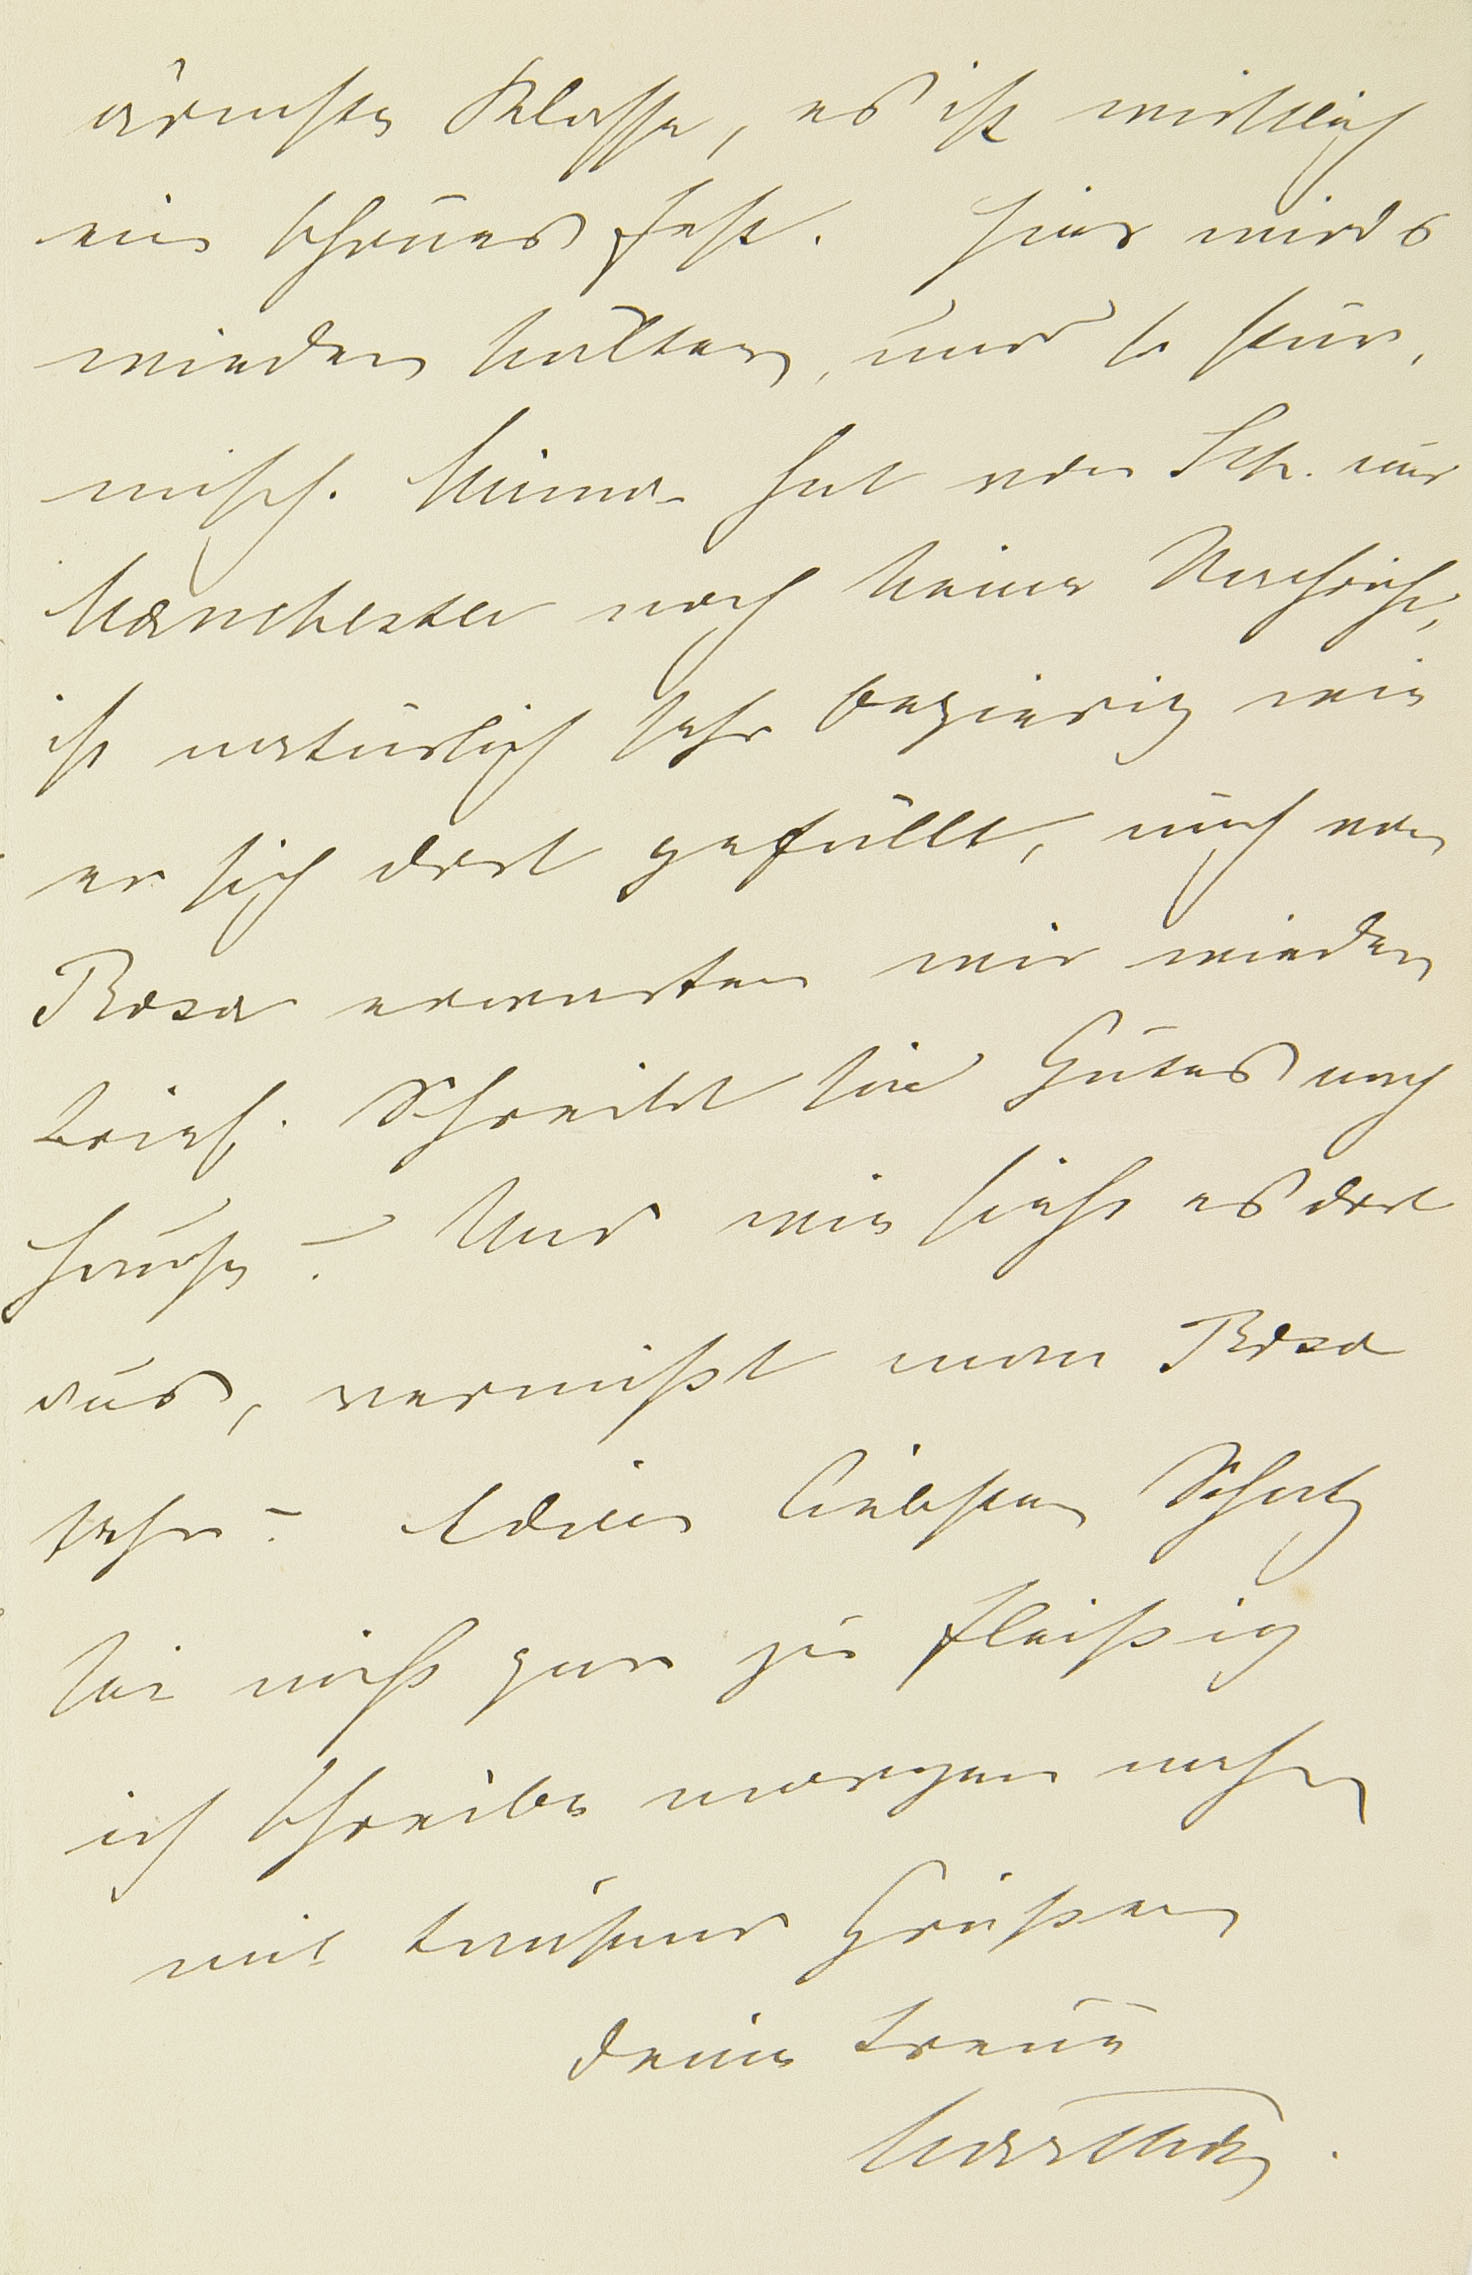 ärmste Klasse, es ist wirklich
ein schönes Fest. Hier wird's
wieder kälter, und so stür,
misch. Mama hat von Sch. aus
Manchester noch keine Nachricht,
ist natürlich sehr begierig wie
er sich dort gefällt, auch von
Rosa erwarten wir wieder
Brief. Schreibt sie Gutes nach
Hause? Und wie sieht es dort
aus, vermißt man Rosa
sehr? Adieu liebster Schatz
sei nicht gar zu fleißig
ich schreibe morgen mehr
mit tausend Grüßen
deine treue
Martha.